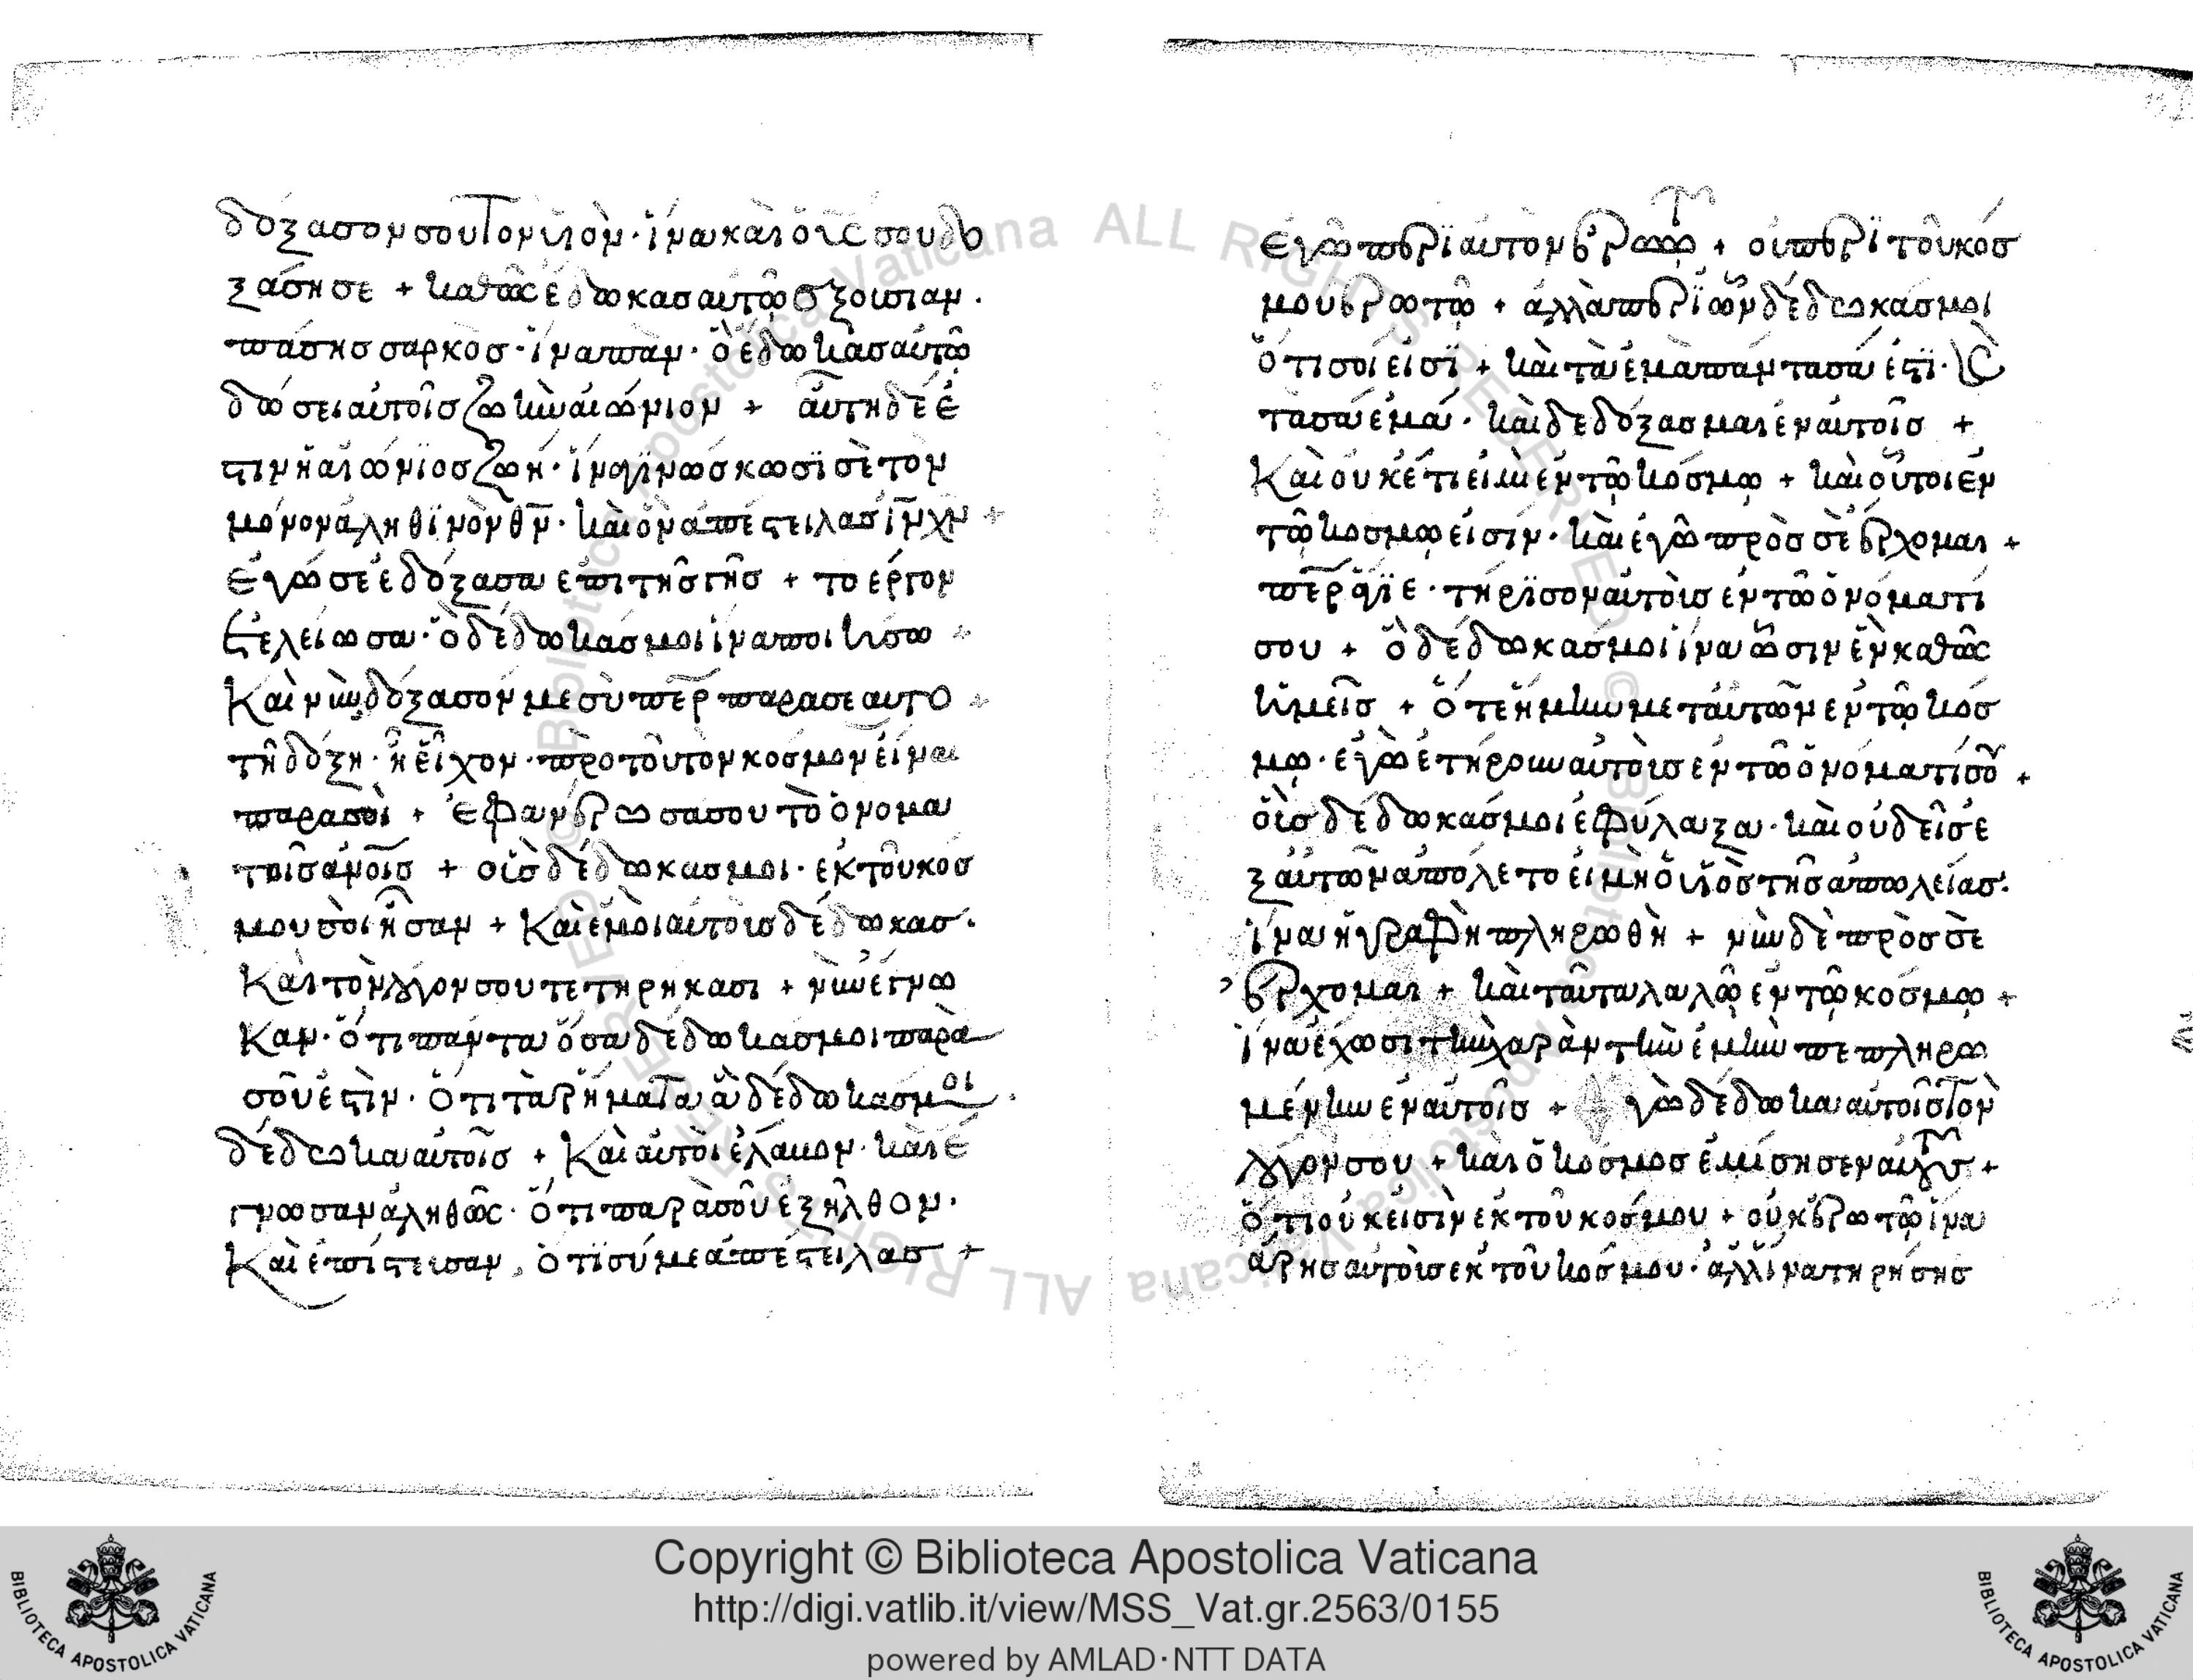 δόξασον σου τον υἱὸν· ἵνα καὶ ὁ υἱς σου δο
ξάση σε + καθὼς ἔδωκας αυτῶ ἐξουσίαν.
πάσης σαρκός· ἵνα πὰν· ὃ ἔδωκας αυτῶ
δώσει αὐτοῖς ζωὴν αἰώνιον + αὕτη δὲ ἐ
στιν ἡ αἰώνϊος ζωή· ἵνα γϊνώσκωσϊ σὲ τὸν
μόνον ἀληθϊνὸν θν̅· καὶ ὃν ἀπέστειλας ιν̅ χν̅ +
Εγώ σε ἐδόξασα επι τῆς γῆς + το έργον
ἐτελείωσα· ὃ δέδωκάς μοι ἵνα ποιήσω +
Καὶ νῦν δόξασόν με σὺ περ̅ παρα σεαυτο
τῆ δόξη· ἧ εἶχον· προ τοῦ τον κοσμον εἶναι
παρα σοὶ + Ἐφανέρωσα σου τὸ ὄνομα
τοῖς ἀνοις̅ + οὓς δέδωκας μοι· ἐκ τοῦ κόσ
μου σοὶ ἦσαν + Καὶ ἐμοὶ αυτοὺς δέδωκας·
Καὶ τὸν λόγον σου τετηρήκασι + νῦν ἔγνω
καν· ὅτι πάντα ὅσα δέδωκάς μοι παρὰ
σοῦ ἐστὶν· Ὅτι τὰ ρήματα ἃ δέδωκας μοι·
δέδωκα αυτοῖς + Καὶ αὐτοὶ ἔλαβον· καὶ έ
γνωσαν ἀληθῶς· Ὅτι παρὰ σοῦ ἐξῆλθον·
Καὶ ἐπίστευσαν, ὅτϊ σύ με ἀπέστειλας +
Εγὼ περὶ αυτὸν ἐρωτῶ + οὐ περὶ τοῦ κόσ
μου ερωτῶ + ἀλλὰ περὶ ὧν δέδωκάς μοι
ὅτι σοι εἰσϊ + καὶ τὰ ἐμὰ πάντα σά ἐστϊ· κ(αὶ)
τὰ σὰ ἐμά· καὶ δεδόξασμαι ἐν αυτοῖς +
Καὶ ούκέτι εἰμὶ ἐν τῶ κόσμω + καὶ οὗτοι ἐν
τῶ κοσμω εἰσίν· καὶ εγὼ πρὸς σὲ ἔρχομαι +
περ̅ ἅγϊε· τήρϊσον αὐτοὺς ἐν τῶ ὀνόματί
σου + ὃ δέδωκάς μοι ἵνα ὦσιν ἓν καθὼς
ἡμεῖς + ὅτε ἤμην μετ ἀυτῶν ἐν τῶ κόσ
μω· εγὼ ἐτήρουν αὐτοὺς ἐν τῶ ὀνόματί σου +
οὓς δέδωκάς μοι ἐφύλαξα· καὶ οὐδεὶς ἐ
ξ αυτῶν ἀπόλετο εἰ μὴ ὁ υἱὸς τῆς ἀπωλείας·
ἵνα ἡ γραφὴ πληρωθῆ + νῦν δὲ πρὸς σὲ
ἔρχομαι + καὶ ταῦτα λαλῶ ἐν τῶ κόσμω +
ἵνα ἔχωσι τὴν χαρὰν τὴν ἐμὴν πεπληρω
μένην ἐν αυτοῖς + γὼ δέδωκα αὐτοῖς τὸν
λόγον σου + καὶ ὁ κόσμος ἐμίσησεν αυτούς +
ὅτι οὐκ εἰσὶν ἐκ τοῦ κόσμου + οὐκ ἐρωτῶ ἵνα
ἄρης αυτοὺς ἐκ τοῦ κόσμου· ἀλλ ἵνα τηρήσης
Copyright © Biblioteca Apostolica Vaticana
http://digi.vatlib.it/view/MSS_Vat.gr.2563/0155
powered by AMLAD·NTT DATA
BIBLIOTECA APOSTOLICA VATICANA
BIBLIOTECA APOSTOLICA VATICANA
© Biblioteca Apostolica Vaticana ALL RIGHTS RESERVED
© Biblioteca Apostolica Vaticana ALL RIGHTS RESERVED